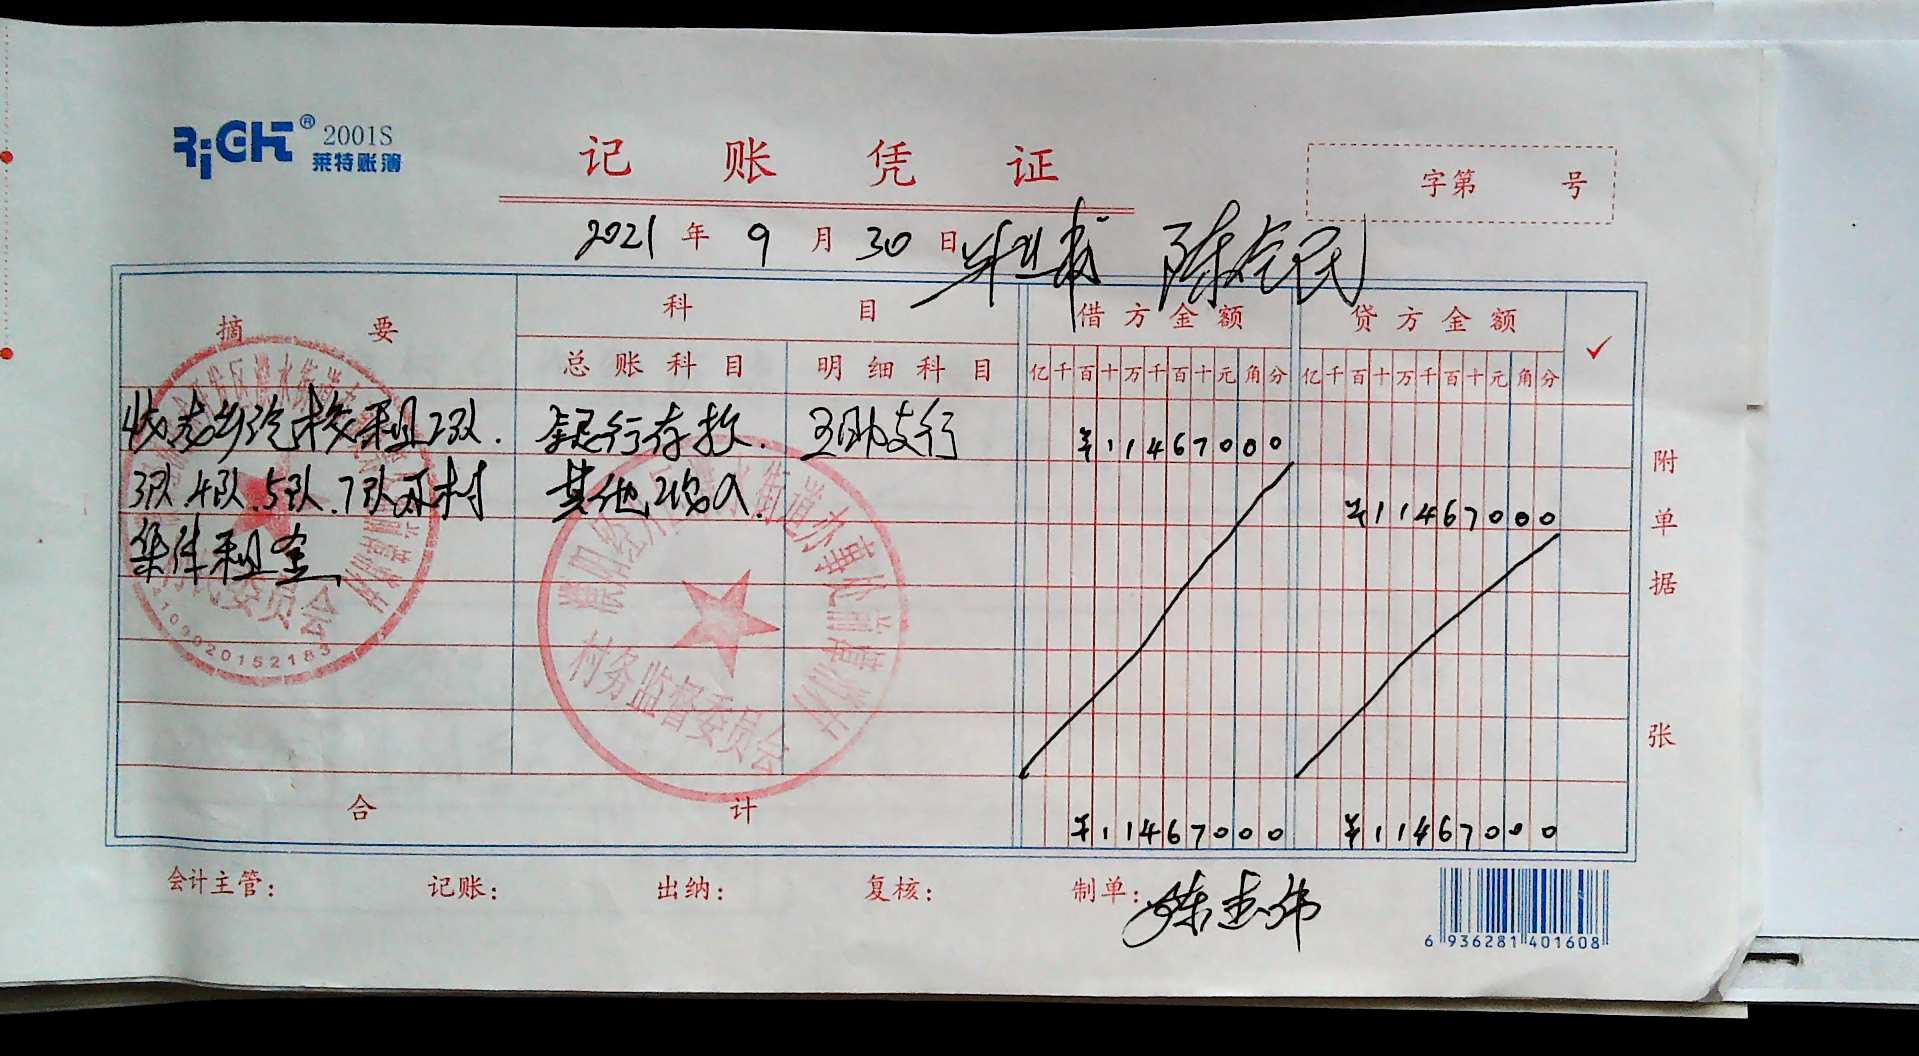 RiGHT® 2001S
莱特账簿
记账凭证
字第 号
2021年9月30日
摘要 科目 借方金额 贷方金额 ✓
总账科目 明细科目 亿千百十万千百十元角分 亿千百十万千百十元角分
租2队. 银行存款. 支行 ¥11467000
3队.4队.5队.7队及村 其他收入. ¥11467000
集体租金
合计 ¥11467000 ¥11467000
附单据 张
村民委员会
4109920152183
濮阳经开区濮水街道办事处前
村务监督委员会
会计主管: 记账: 出纳: 复核: 制单:陈志伟
6 936281 401608